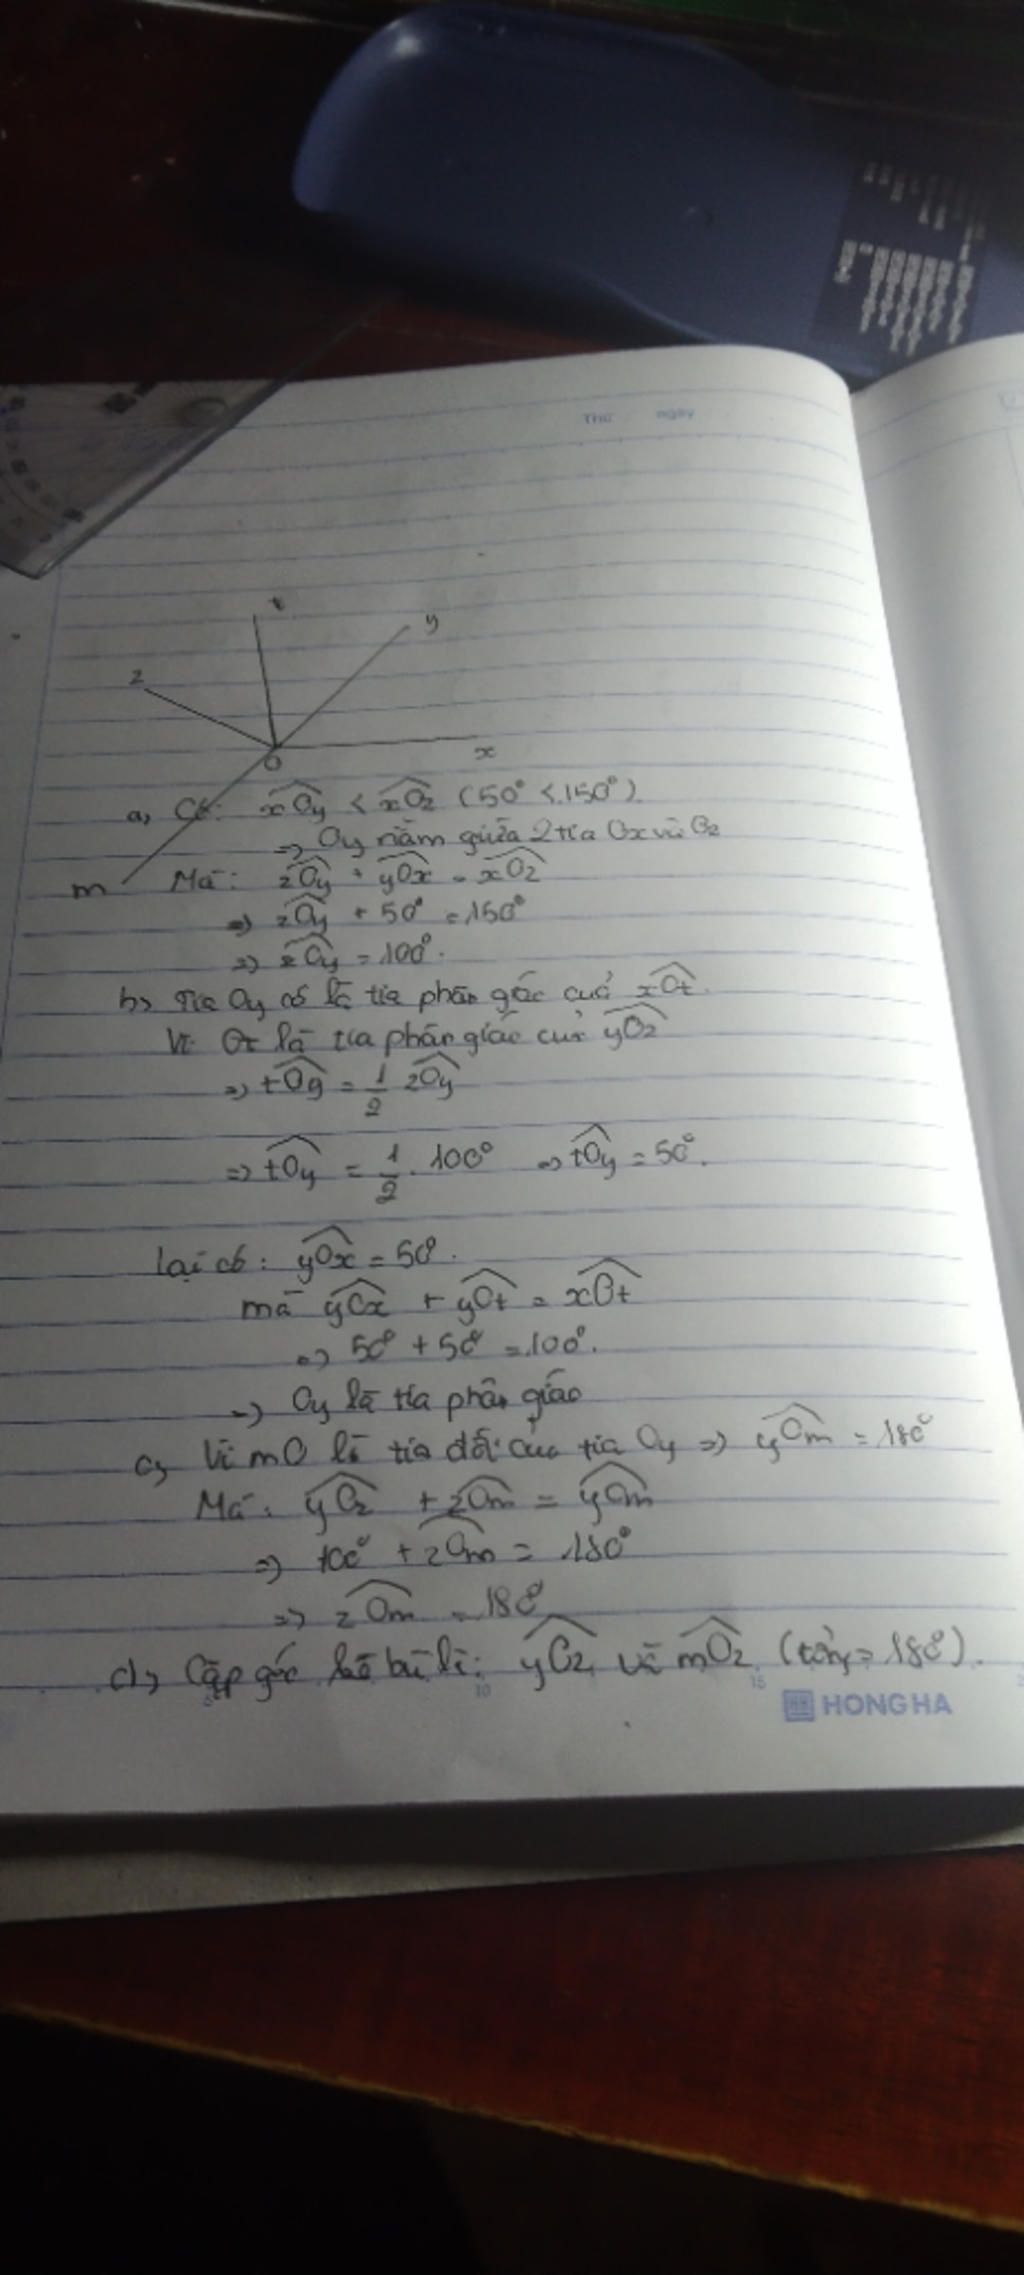 Thứ ngày
t
y
z
O
x
m
a, Có: xOy < xOz (50° < 150°)
=> Oy nằm giữa 2 tia Ox và Oz
Mà: zOy + yOx = xOz
=> zOy + 50° = 150°
=> zOy = 100°.
b, Tia Oy có là tia phân giác của xOt.
Vì Ot là tia phân giác của yOz
=> tOy = 1/2 zOy
=> tOy = 1/2 . 100° => tOy = 50°.
Lại có: yOx = 50°.
mà yOx + yOt = xOt
=> 50° + 50° = 100°.
=> Oy là tia phân giác
c, Vì mO là tia đối của tia Oy => yOm = 180°
Mà: yOz + zOm = yOm
=> 100° + zOm = 180°
=> zOm = 180°
d, Cặp góc kề bù là: yOz và mOz (tổng = 180°).
10 15
HONG HA